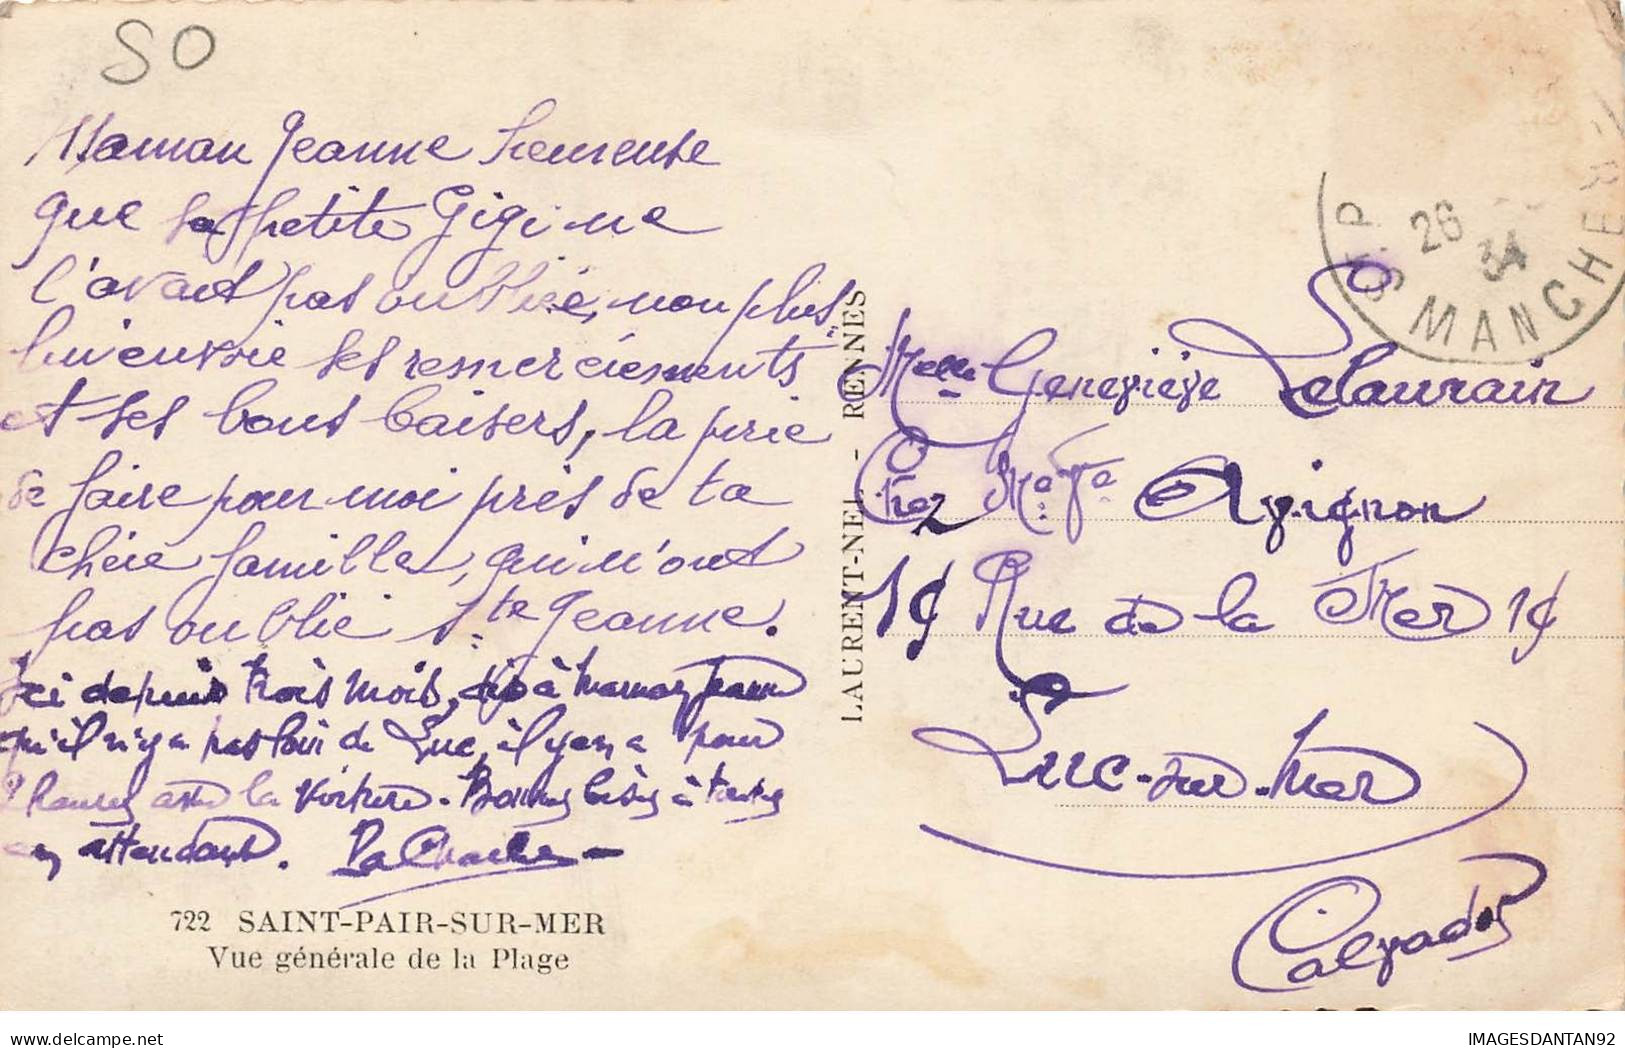 50
Maman Jeanne heureuse
que sa petite Gigi ne
l'avait pas oubliée, non plus,
lui envoie ses remerciements
et ses bons baisers, la prie
de faire pour moi près de ta
chère famille, qui n'ont
pas oublié Ste Jeanne.
Ici depuis trois mois, dis à maman Jeanne
qu'il n'y a pas loin de Luc, il y en a pour
heures avec la voiture. Bons baisers à tous
en attendant. Pa Charles
722 SAINT-PAIR-SUR-MER
Vue générale de la Plage
LAURENT-NEL - RENNES
26
34
MANCHE
Melle Geneviève Lelaurain
Chez Me Ve Avignon
19 Rue de la Mer 19
Luc-sur-Mer
Calvados
IMAGESDANTAN92